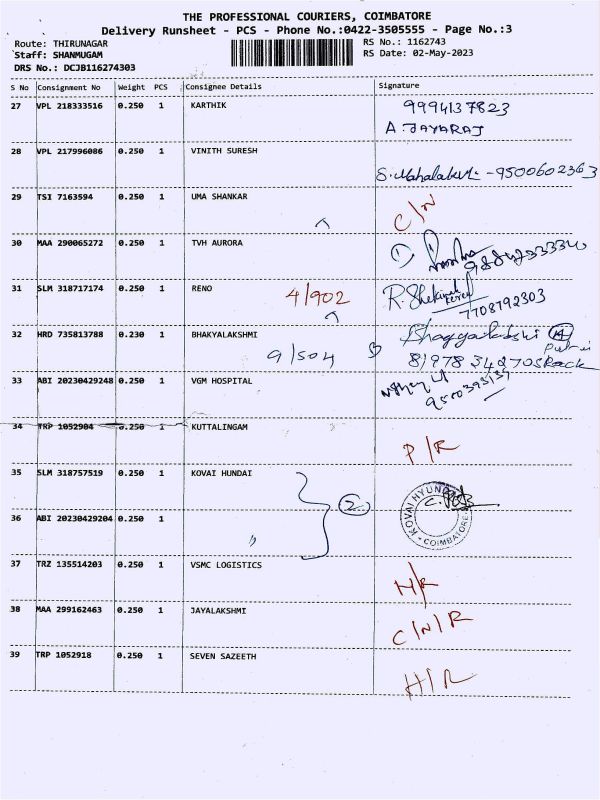 THE PROFESSIONAL COURIERS, COIMBATORE
Delivery Runsheet - PCS - Phone No.:0422-3505555 - Page No.:3
Route: THIRUNAGAR
Staff: SHANMUGAM
DRS No.: DCJB116274303
RS No.: 1162743
RS Date: 02-May-2023
S No Consignment No Weight PCS Consignee Details Signature
27 VPL 218333516 0.250 1 KARTHIK 9994137823
A.JAYARAJ
28 VPL 217996086 0.250 1 VINITH SURESH
-9500602363
29 TSI 7163594 0.250 1 UMA SHANKAR C/N
30 MAA 290065272 0.250 1 TVH AURORA
31 SLM 318717174 0.250 1 RENO 4/902
7708792303
32 HRD 735813788 0.230 1 BHAKYALAKSHMI
9/504
33 ABI 20230429248 0.250 1 VGM HOSPITAL
34 TRP 1052904 0.250 1 KUTTALINGAM P/R
35 SLM 318757519 0.250 1 KOVAI HUNDAI 2
KOVAI HYUNDAI
COIMBATORE
36 ABI 20230429204 0.250 1 〃
37 TRZ 135514203 0.250 1 VSMC LOGISTICS N/R
38 MAA 299162463 0.250 1 JAYALAKSHMI C/N/R
39 TRP 1052918 0.250 1 SEVEN SAZEETH H/R